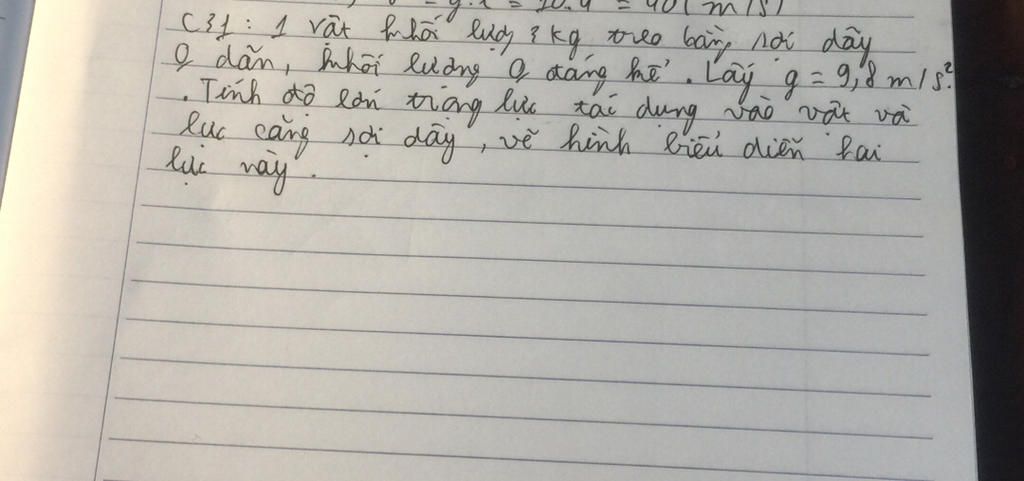 = g.t = 10.4 = 40 (m/s)
C31: 1 vật khối lượng 3 kg treo bằng sợi dây
0 dãn, khối lượng 0 đáng kể. Lấy g = 9,8 m/s².
. Tính độ lớn trọng lực tác dụng vào vật và
lực căng sợi dây, vẽ hình biểu diễn hai
lực này.